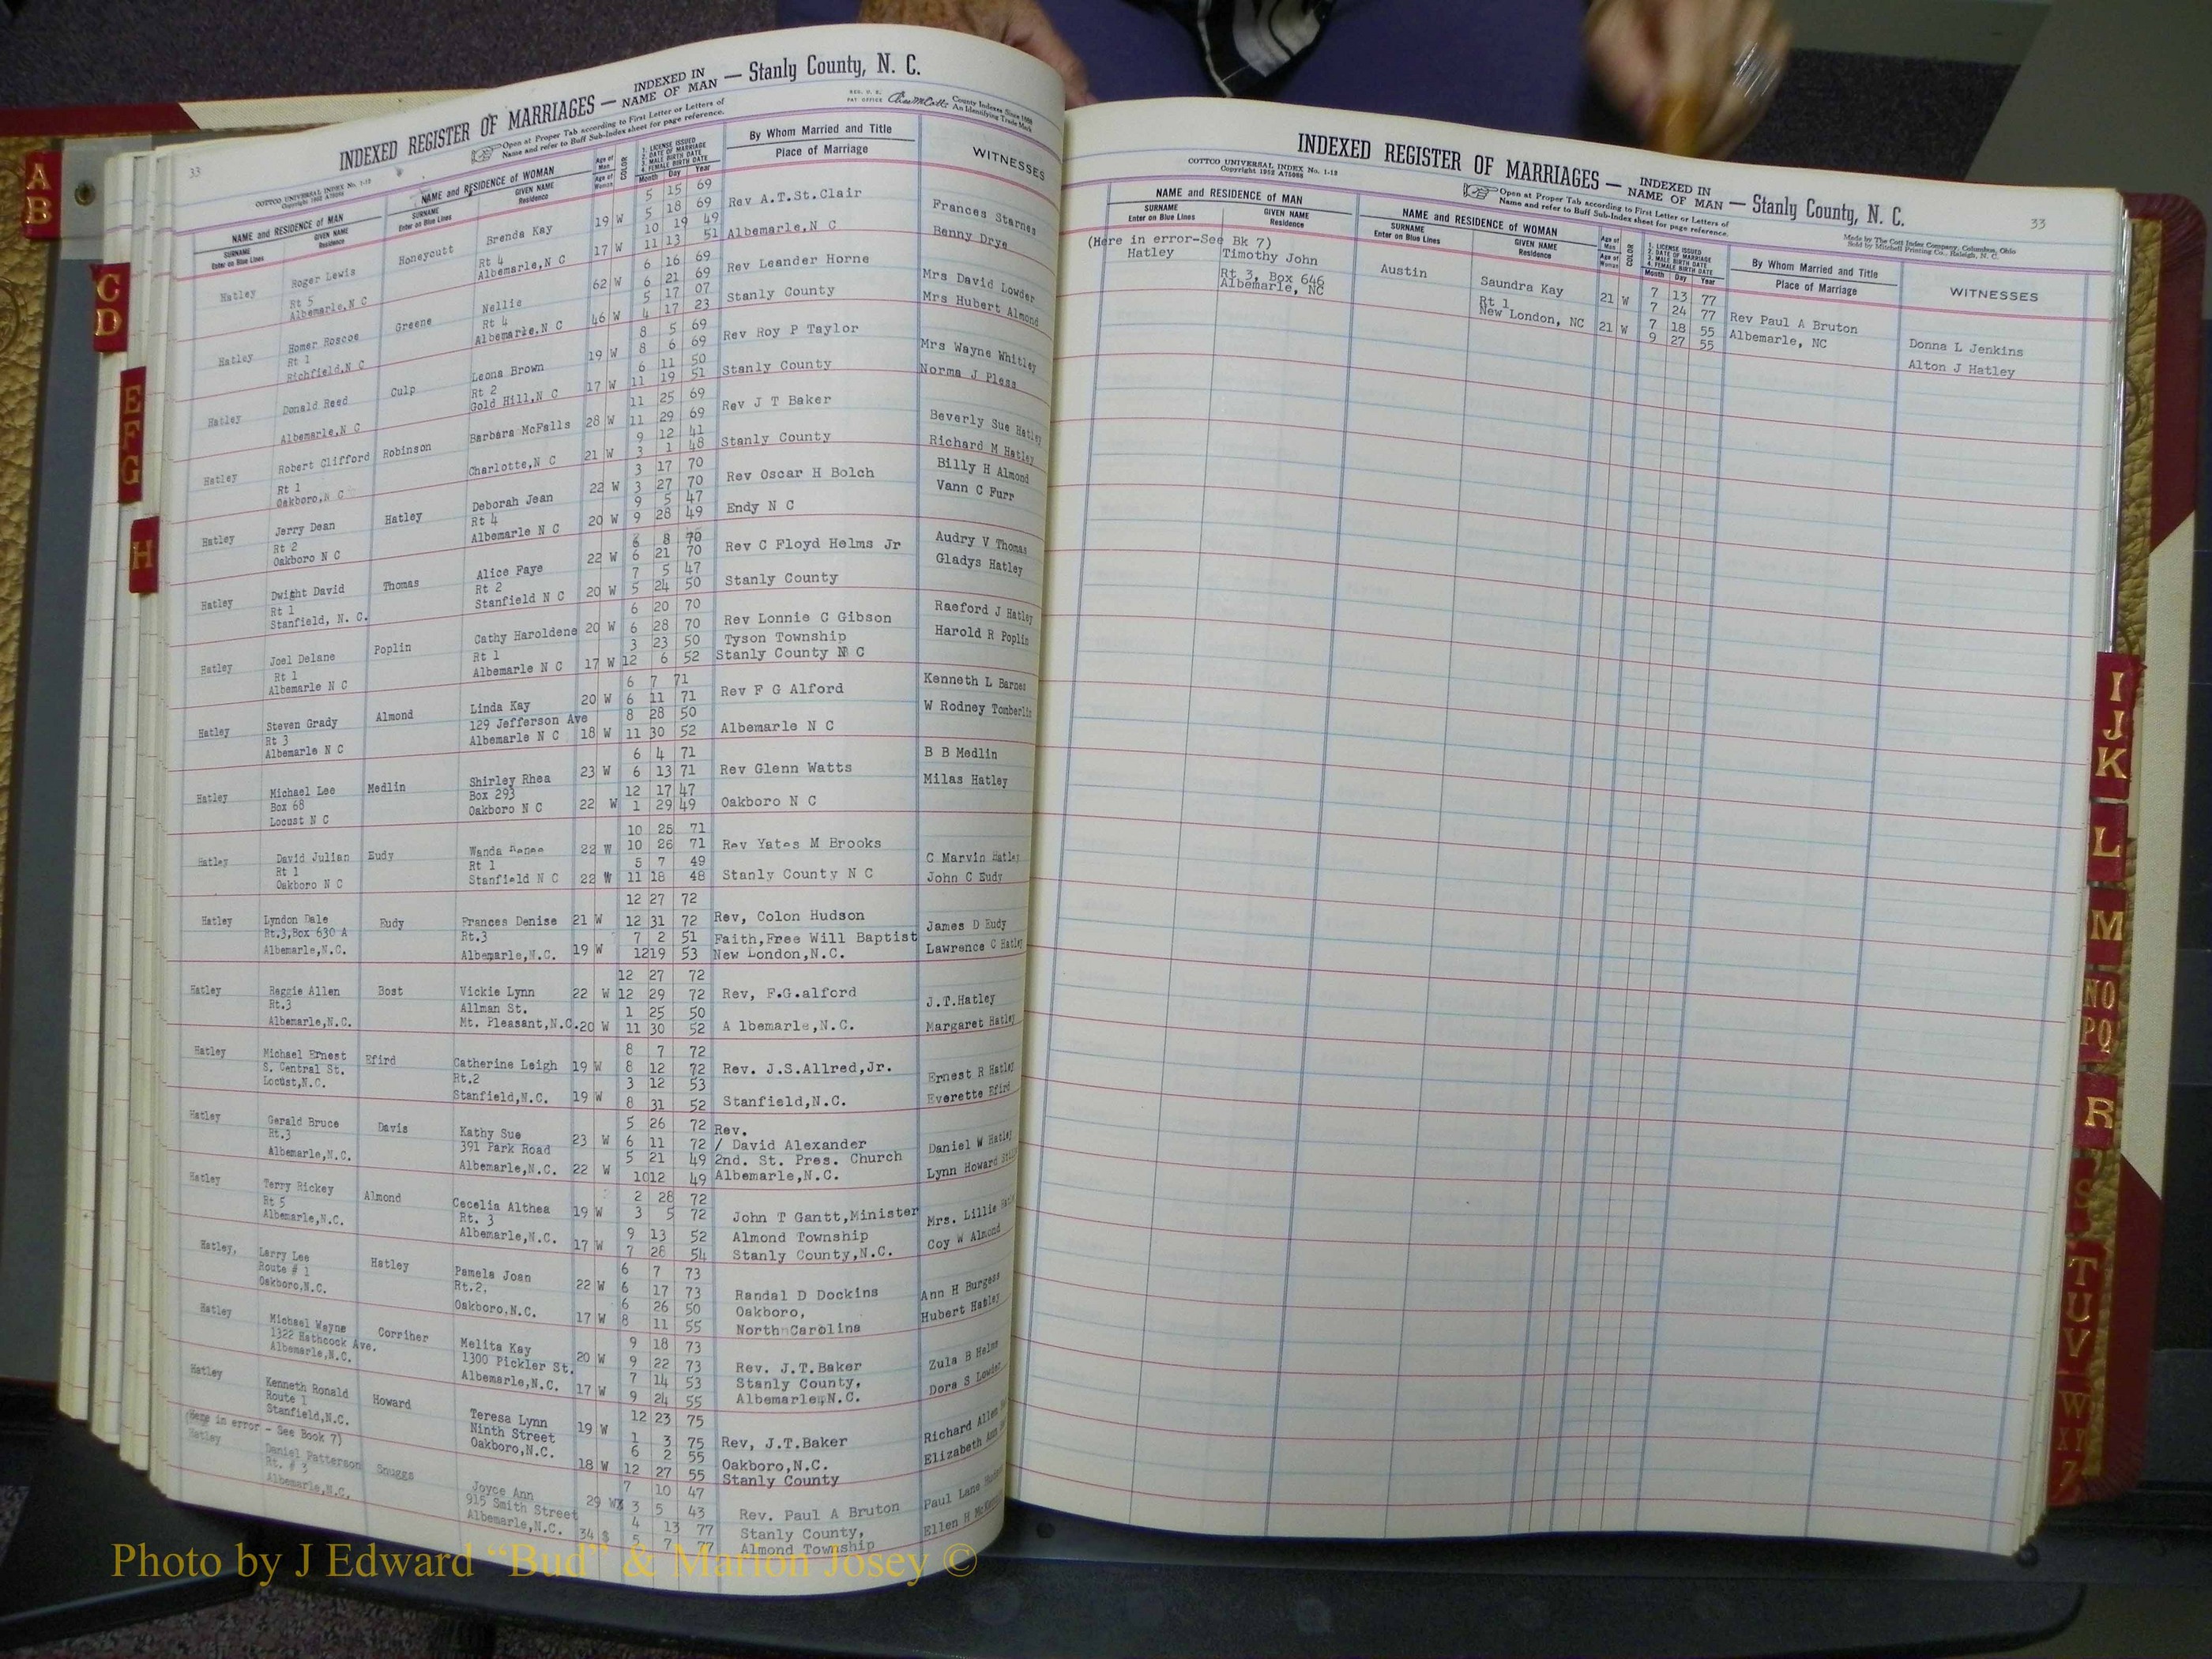 33
INDEXED REGISTER OF MARRIAGES — INDEXED IN NAME OF MAN — Stanly County, N. C.
COTTCO UNIVERSAL INDEX No. 1-12
Copyright 1952
Open at Proper Tab according to First Letter or Letters of
Name and refer to Buff Sub-Index sheet for page reference.
County Indexes Since 1888
An Identifying Trade Mark
NAME and RESIDENCE OF MAN NAME and RESIDENCE OF WOMAN Age of Man Age of Woman COLOR 1. LICENSE ISSUED 2. DATE OF MARRIAGE 3. MALE BIRTH DATE 4. FEMALE BIRTH DATE By Whom Married and Title WITNESSES
SURNAME Enter on Blue Lines GIVEN NAME Residence SURNAME Enter on Blue Lines GIVEN NAME Residence Month Day Year Place of Marriage
Hatley Roger Lewis Honeycutt Brenda Kay 19 W 5 15 69 Rev A.T.St.Clair Frances Starnes
Rt 5 Rt 4 5 18 69
Albemarle,N C Albemarle,N C 17 W 10 19 49 Albemarle,N C Benny Drye
11 13 51
Hatley Homer Roscoe Greene Nellie 62 W 6 16 69 Rev Leander Horne Mrs David Lowder
Rt 1 Rt 4 6 21 69
Richfield,N C Albemarle,N C 46 W 5 17 07 Stanly County Mrs Hubert Almond
4 17 23
Hatley Donald Reed Culp Leona Brown 19 W 8 5 69 Rev Roy P Taylor Mrs Wayne Whitley
Rt 2 8 6 69
Albemarle,N C Gold Hill,N C 17 W 6 11 50 Stanly County Norma J Pless
11 19 51
Hatley Robert Clifford Robinson Barbara McFalls 28 W 11 25 69 Rev J T Baker Beverly Sue Hatley
Rt 1 11 29 69
Oakboro,N C Charlotte,N C 21 W 9 12 41 Stanly County Richard M Hatley
3 1 48
Hatley Jerry Dean Hatley Deborah Jean 22 W 3 17 70 Rev Oscar H Bolch Billy H Almond
Rt 2 Rt 4 3 27 70 Vann C Furr
Oakboro N C Albemarle N C 20 W 9 5 47 Endy N C
9 28 49
Hatley Dwight David Thomas Alice Faye 22 W 6 8 70 Rev C Floyd Helms Jr Audry V Thomas
Rt 1 Rt 2 6 21 70 Gladys Hatley
Stanfield, N. C. Stanfield N C 20 W 7 5 47 Stanly County
5 24 50
Hatley Joel Delane Poplin Cathy Haroldene 20 W 6 20 70 Rev Lonnie C Gibson Raeford J Hatley
Rt 1 Rt 1 6 28 70 Tyson Township Harold R Poplin
Albemarle N C Albemarle N C 17 W 3 23 50 Stanly County N C
12 6 52
Hatley Steven Grady Almond Linda Kay 20 W 6 7 71 Rev F G Alford Kenneth L Barnes
Rt 3 129 Jefferson Ave 6 11 71 W Rodney Tomberlin
Albemarle N C Albemarle N C 18 W 8 28 50 Albemarle N C
11 30 52
Hatley Michael Lee Medlin Shirley Rhea 23 W 6 4 71 Rev Glenn Watts B B Medlin
Box 68 Box 293 6 13 71 Milas Hatley
Locust N C Oakboro N C 22 W 12 17 47 Oakboro N C
1 29 49
Hatley David Julian Eudy Wanda Renee 22 W 10 25 71 Rev Yates M Brooks C Marvin Hatley
Rt 1 Rt 1 10 26 71
Oakboro N C Stanfield N C 22 W 5 7 49 Stanly County N C John C Eudy
11 18 48
Hatley Lyndon Dale Eudy Frances Denise 21 W 12 27 72 Rev, Colon Hudson James D Eudy
Rt.3,Box 630 A Rt.3 12 31 72 Faith,Free Will Baptist
Albemarle,N.C. Albemarle,N.C. 19 W 7 2 51 New London,N.C. Lawrence C Hatley
12 19 53
Hatley Reggie Allen Bost Vickie Lynn 22 W 12 27 72 Rev, F.G.alford J.T.Hatley
Rt.3 Allman St. 12 29 72
Albemarle,N.C. Mt. Pleasant,N.C. 20 W 1 25 50 A lbemarle,N.C. Margaret Hatley
11 30 52
Hatley Michael Ernest Efird Catherine Leigh 19 W 8 7 72 Rev. J.S.Allred,Jr. Ernest R Hatley
S. Central St. Rt.2 8 12 72
Locust,N.C. Stanfield,N.C. 19 W 3 12 53 Stanfield,N.C. Everette Efird
8 31 52
Hatley Gerald Bruce Davis Kathy Sue 23 W 5 26 72 Rev. Daniel W Hatley
Rt.3 391 Park Road 6 11 72 / David Alexander
Albemarle,N.C. Albemarle,N.C. 22 W 5 21 49 2nd. St. Pres. Church Lynn Howard
10 12 49 Albemarle,N.C.
Hatley Terry Rickey Almond Cecelia Althea 19 W 2 28 72 John T Gantt,Minister Mrs. Lillie
Rt 5 Rt. 3 3 5 72 Almond Township Coy W Almond
Albemarle,N.C. Albemarle,N.C. 17 W 9 13 52 Stanly County,N.C.
7 28 54
Hatley, Larry Lee Hatley Pamela Joan 22 W 6 7 73 Randal D Dockins Ann H Burgess
Route # 1 Rt.2, 6 17 73 Oakboro, Hubert Hatley
Oakboro,N.C. Oakboro,N.C. 17 W 6 26 50 North Carolina
8 11 55
Hatley Michael Wayne Corriher Melita Kay 20 W 9 18 73 Rev. J.T.Baker Zula B Helms
1322 Hathcock Ave. 1300 Pickler St. 9 22 73 Stanly County, Dora S Lowder
Albemarle,N.C. Albemarle,N.C. 17 W 7 14 53 Albemarle,N.C.
9 24 55
Hatley Kenneth Ronald Howard Teresa Lynn 19 W 12 23 75 Rev, J.T.Baker Richard Allen
Route 1 Ninth Street 1 3 75 Oakboro,N.C. Elizabeth Ann
Stanfield,N.C. Oakboro,N.C. 18 W 6 2 55 Stanly County
12 27 55
(Here in error - See Book 7)
Hatley Daniel Patterson Snuggs Joyce Ann 29 W 7 10 47 Rev. Paul A Bruton Paul Lane
Rt. # 3 915 Smith Street 3 5 43 Stanly County, Ellen H
Albemarle,N.C. Albemarle,N.C. 34 4 13 77 Almond Township
5 7 77
INDEXED REGISTER OF MARRIAGES — INDEXED IN NAME OF MAN — Stanly County, N. C.
33
COTTCO UNIVERSAL INDEX No. 1-12
Copyright 1952
Open at Proper Tab according to First Letter or Letters of
Name and refer to Buff Sub-Index sheet for page reference.
Made by The Cott Index Company, Columbus, Ohio
Sold by Mitchell Printing Co., Raleigh, N. C.
NAME and RESIDENCE OF MAN NAME and RESIDENCE OF WOMAN Age of Man Age of Woman COLOR 1. LICENSE ISSUED 2. DATE OF MARRIAGE 3. MALE BIRTH DATE 4. FEMALE BIRTH DATE By Whom Married and Title WITNESSES
SURNAME Enter on Blue Lines GIVEN NAME Residence SURNAME Enter on Blue Lines GIVEN NAME Residence Month Day Year Place of Marriage
(Here in error-See Bk 7)
Hatley Timothy John Austin Saundra Kay 21 W 7 13 77 Rev Paul A Bruton Donna L Jenkins
Rt 3, Box 646 Rt 1 7 24 77
Albemarle, NC New London, NC 21 W 7 18 55 Albemarle, NC Alton J Hatley
9 27 55
A
B
C
D
E
F
G
H
I
J
K
L
M
NO
PQ
R
S
T
U
V
W
X Y
Z
Photo by J Edward “Bud” & Marion Josey ©